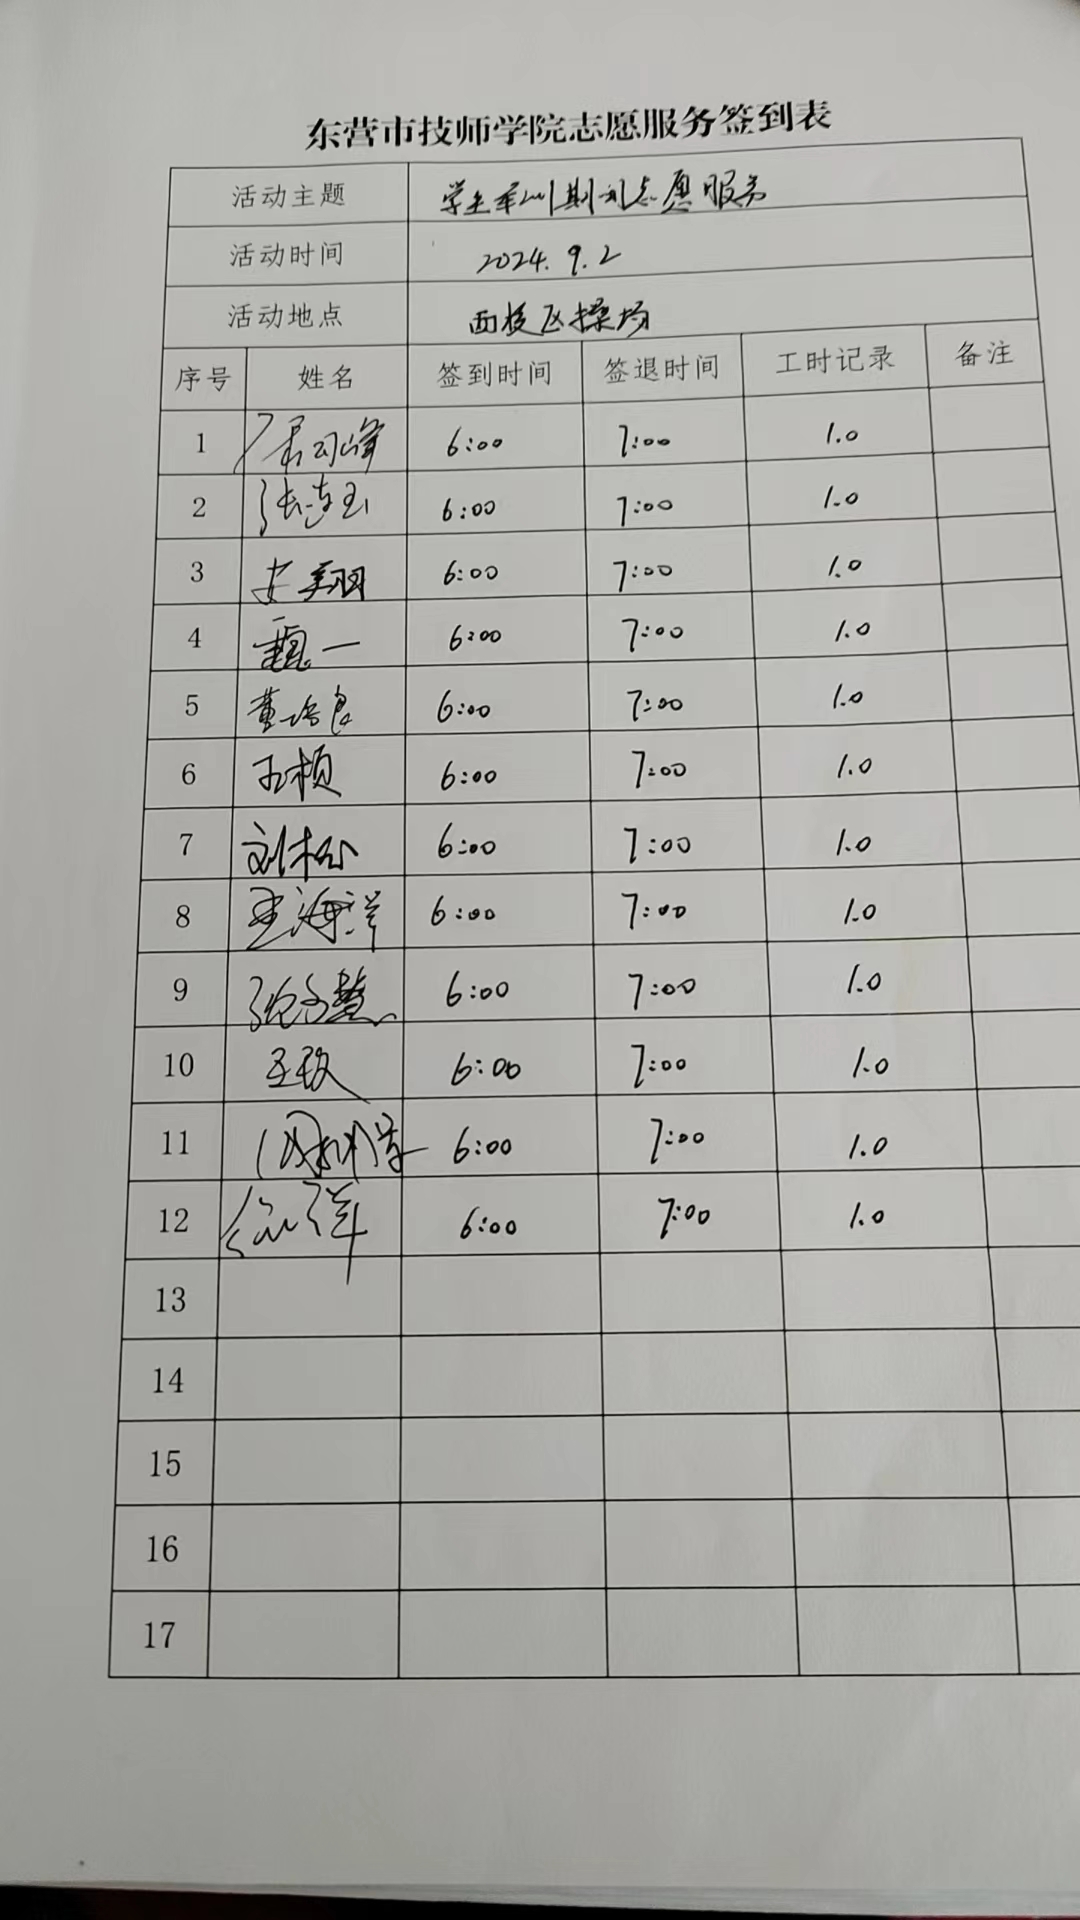 东营市技师学院志愿服务签到表
活动主题 学生军训期间志愿服务
活动时间 2024.9.2
活动地点 西校区操场
序号 姓名 签到时间 签退时间 工时记录 备注
1 6:00 7:00 1.0
2 6:00 7:00 1.0
3 安翔 6:00 7:00 1.0
4 甄一 6:00 7:00 1.0
5 董培良 6:00 7:00 1.0
6 王桢 6:00 7:00 1.0
7 刘 6:00 7:00 1.0
8 王海洋 6:00 7:00 1.0
9 6:00 7:00 1.0
10 王玫 6:00 7:00 1.0
11 6:00 7:00 1.0
12 6:00 7:00 1.0
13
14
15
16
17